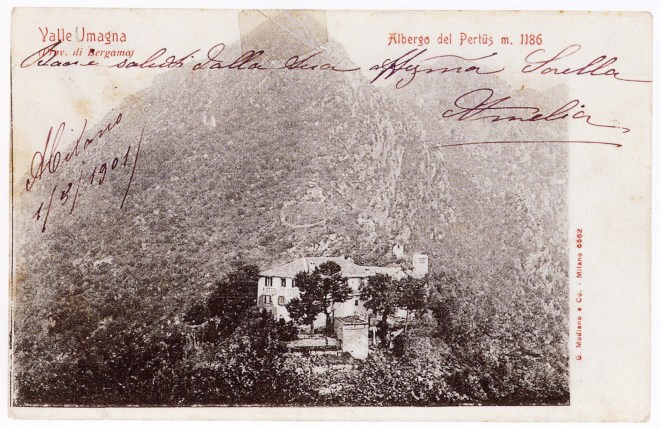 Valle Umagna
(Prov. di Bergama)
Albergo del Pertüs m. 1186
Baci e saluti dalla tua Affzma Sorella
Amelia
Milano
1/3/1901
G. Modiano e Co. - Milano 6562